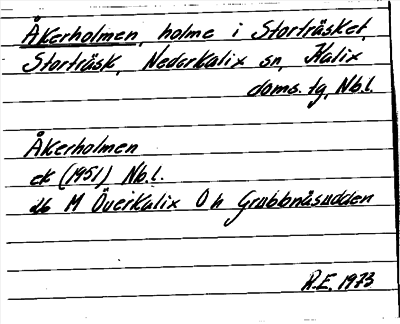 Åkerholmen, holme i Storträsket,
Storträsk, Nederkalix sn, Kalix
doms. tg, Nb.l.
Åkerholmen
ek (1951) Nb.l.
db M Överkalix O h Grubbnäsudden
R.E. 1973